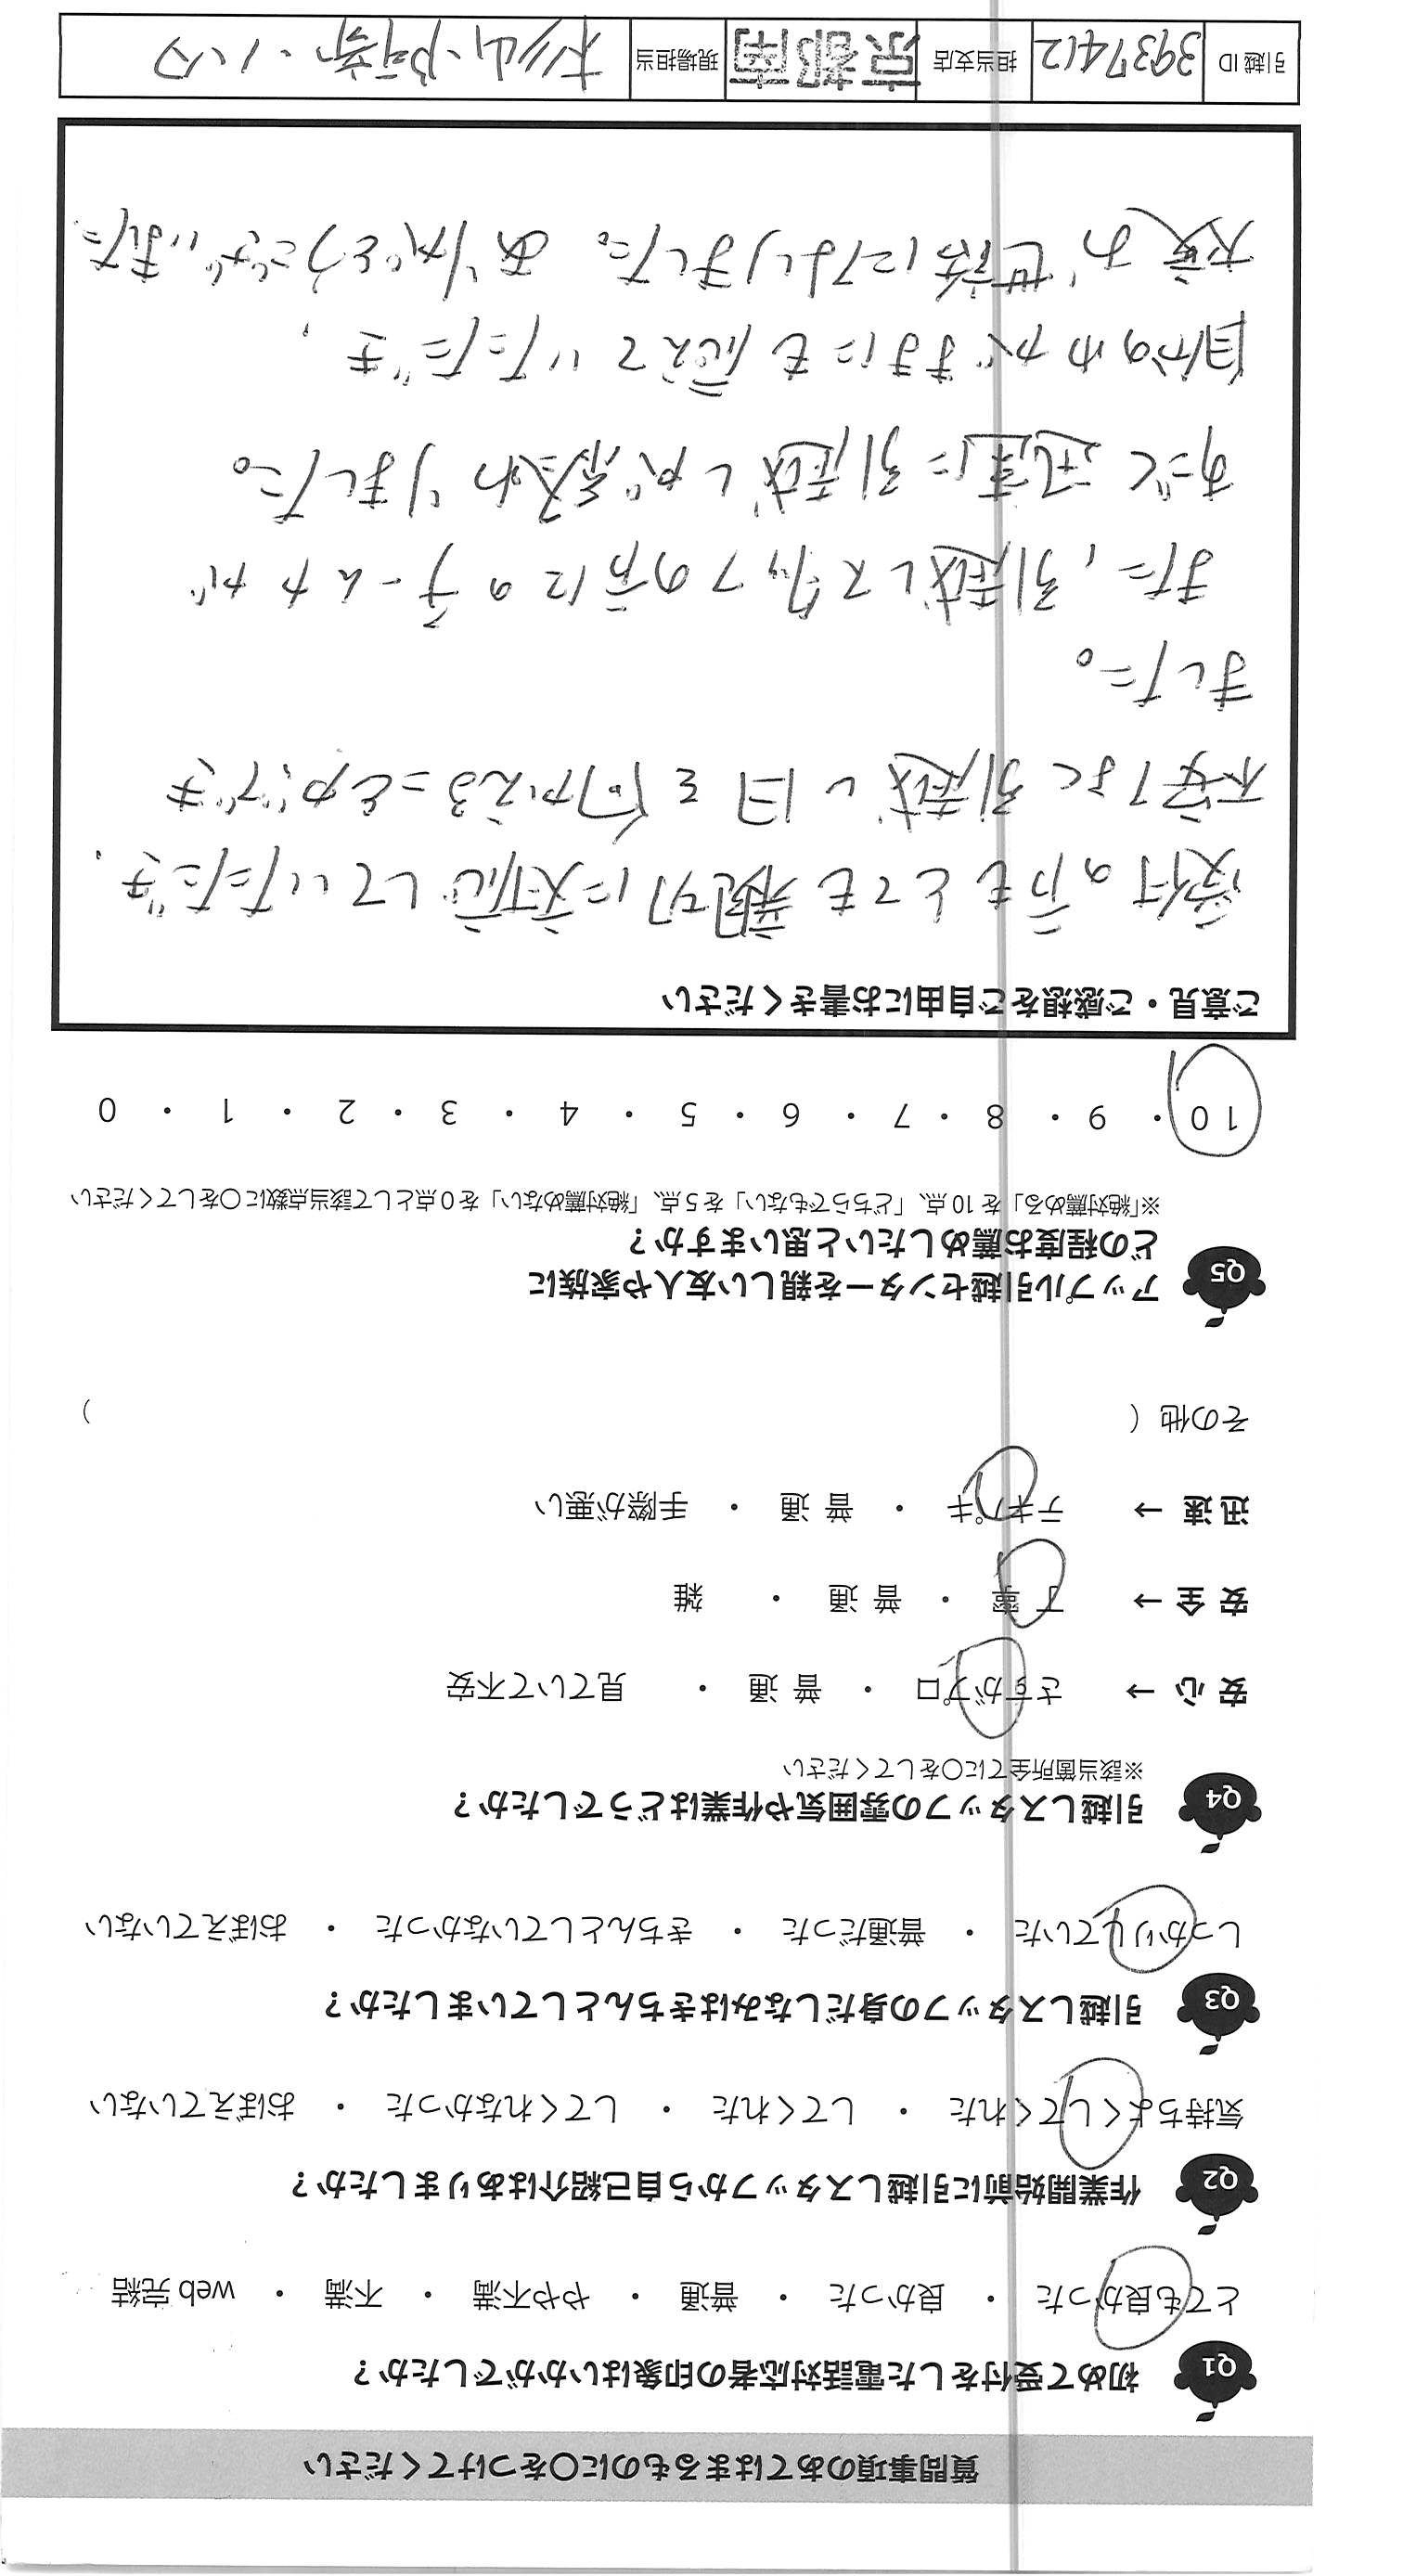 質問事項のあてはまるものに○をつけてください
Q1 初めて受付をした電話対応者の印象はいかがでしたか？
とても良かった ・ 良かった ・ 普通 ・ やや不満 ・ 不満 ・ web 完結
Q2 作業開始前に引越しスタッフから自己紹介はありましたか？
気持ちよくしてくれた ・ してくれた ・ してくれなかった ・ おぼえていない
Q3 引越しスタッフの身だしなみはきちんとしていましたか？
しっかりしていた ・ 普通だった ・ きちんとしていなかった ・ おぼえていない
Q4 引越しスタッフの雰囲気や作業はどうでしたか？
※該当箇所全てに○をしてください
安心 → さすがプロ ・ 普通 ・ 見ていて不安
安全 → 丁寧 ・ 普通 ・ 雑
迅速 → テキパキ ・ 普通 ・ 手際が悪い
その他 （ ）
Q5 アップル引越センターを親しい友人や家族に
どの程度お薦めしたいと思いますか？
※「絶対薦める」を 10 点、「どちらでもない」を 5 点、「絶対薦めない」を 0 点として該当点数に○をしてください
10 ・ 9 ・ 8 ・ 7 ・ 6 ・ 5 ・ 4 ・ 3 ・ 2 ・ 1 ・ 0
ご意見・ご感想をご自由にお書きください
受付の方もとても親切に対応していただき、
不安なく引越し日を向かえることができ
ました。
また、引越しスタッフの方々のチーム力が
すごく迅速に引越しが終わりました。
自分のわがままにも応えていただき、
大変お世話になりました。ありがとうございました
引越 ID 3937412 担当支店 京都南 現場担当 杉山・